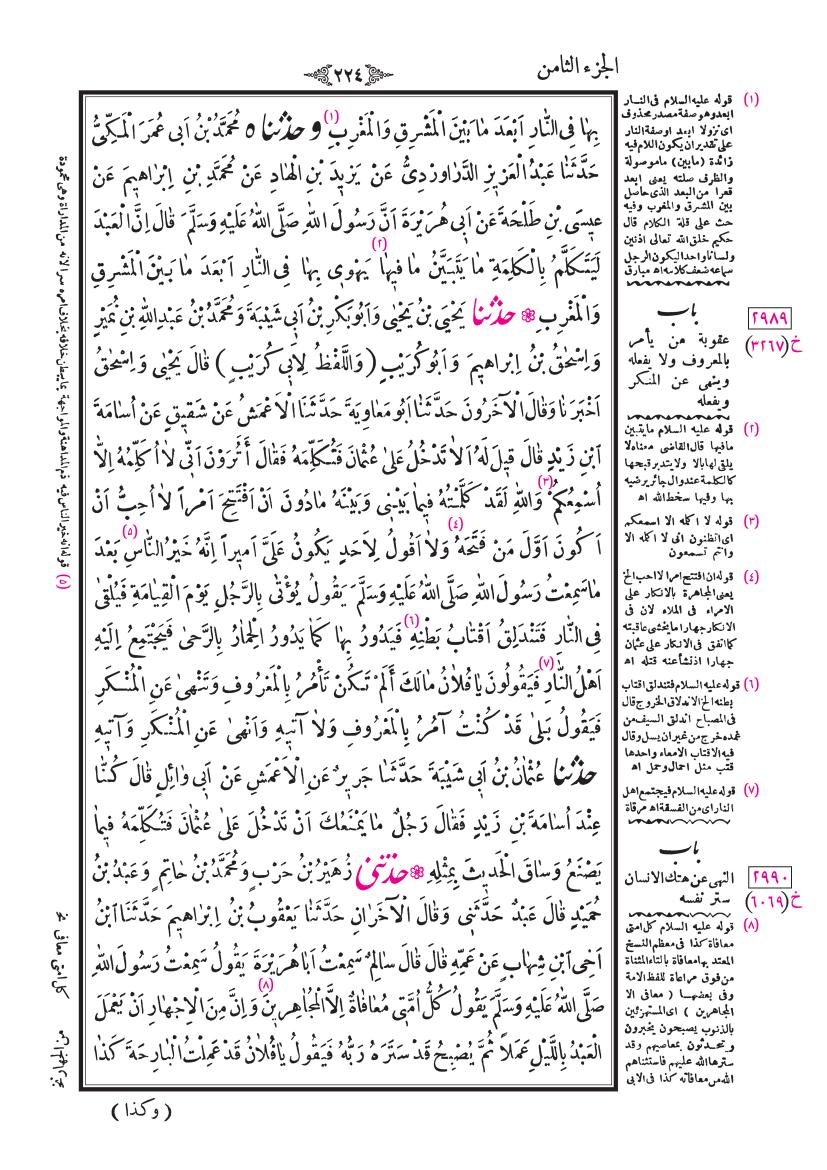 الجزء الثامن
٢٢٤
بِهَا فِى النَّارِ اَبْعَدَ مَا بَيْنَ الْمَشْرِقِ وَالْمَغْرِبِ (١) و حدثنا ٥ مُحَمَّدُ بْنُ اَبى عُمَرَ الْمَكِّىُّ
حَدَّثَنَا عَبْدُ الْعَزيزِ الدَّرَاوَرْدِىُّ عَنْ يَزيدَ بْنِ الْهَادِ عَنْ مُحَمَّدِ بْنِ اِبْرَاهيمَ عَنْ
عيسَى بْنِ طَلْحَةَ عَنْ اَبى هُرَيْرَةَ اَنَّ رَسُولَ اللهِ صَلَّى اللهُ عَلَيْهِ وَسَلَّمَ قَالَ اِنَّ الْعَبْدَ
لَيَتَكَلَّمُ بِالْكَلِمَةِ مَا يَتَبَيَّنُ مَا فيهَا (٢) يَهْوى بِهَا فِى النَّارِ اَبْعَدَ مَا بَيْنَ الْمَشْرِقِ
وَالْمَغْرِبِ ۞ حدثنا يَحْيَى بْنُ يَحْيٰى وَاَبُوبَكْرِ بْنُ اَبى شَيْبَةَ وَمُحَمَّدُ بْنُ عَبْدِاللهِ بْنِ نُمَيْرٍ
وَاِسْحٰقُ بْنُ اِبْرَاهيمَ وَاَبُوكُرَيْبٍ (وَاللَّفْظُ لِاَبى كُرَيْبٍ) قَالَ يَحْيٰى وَاِسْحٰقُ
اَخْبَرَنَا وَقَالَ الْآخَرُونَ حَدَّثَنَا اَبُو مُعَاوِيَةَ حَدَّثَنَا الْاَعْمَشُ عَنْ شَقيقٍ عَنْ اُسَامَةَ
ابْنِ زَيْدٍ قَالَ قيلَ لَهُ اَلَا تَدْخُلُ عَلىٰ عُثْمَانَ فَتُكَلِّمَهُ فَقَالَ أَتُرَوْنَ اَنّى لَا اُكَلِّمُهُ اِلَّا
اُسْمِعُكُمْ (٣) وَاللهِ لَقَدْ كَلَّمْتُهُ فيمَا بَيْنى وَبَيْنَهُ مَادُونَ اَنْ اَفْتَتِحَ اَمْراً لَا اُحِبُّ اَنْ
اَكُونَ اَوَّلَ مَنْ فَتَحَهُ (٤) وَلَا اَقُولُ لِاَحَدٍ يَكُونُ عَلَىَّ اَميراً اِنَّهُ خَيْرُ النَّاسِ (٥) بَعْدَ
مَا سَمِعْتُ رَسُولَ اللهِ صَلَّى اللهُ عَلَيْهِ وَسَلَّمَ يَقُولُ يُؤْتٰى بِالرَّجُلِ يَوْمَ الْقِيَامَةِ فَيُلْقٰى
فِى النَّارِ فَتَنْدَلِقُ اَقْتَابُ بَطْنِهِ (٦) فَيَدُورُ بِهَا كَمَا يَدُورُ الْحِمَارُ بِالرَّحٰى فَيَجْتَمِعُ اِلَيْهِ
اَهْلُ النَّارِ (٧) فَيَقُولُونَ يَا فُلَانُ مَالَكَ اَلَمْ تَكُنْ تَأْمُرُ بِالْمَعْرُوفِ وَتَنْهٰى عَنِ الْمُنْكَرِ
فَيَقُولُ بَلىٰ قَدْ كُنْتُ آمُرُ بِالْمَعْرُوفِ وَلَا آتيهِ وَاَنْهىٰ عَنِ الْمُنْكَرِ وَآتيهِ
حدثنا عُثْمَانُ بْنُ اَبى شَيْبَةَ حَدَّثَنَا جَريرٌ عَنِ الْاَعْمَشِ عَنْ اَبى وَائِلٍ قَالَ كُنَّا
عِنْدَ اُسَامَةَ بْنِ زَيْدٍ فَقَالَ رَجُلٌ مَا يَمْنَعُكَ اَنْ تَدْخُلَ عَلىٰ عُثْمَانَ فَتُكَلِّمَهُ فيمَا
يَصْنَعُ وَسَاقَ الْحَديثَ بِمِثْلِهِ ۞ حدثنى زُهَيْرُ بْنُ حَرْبٍ وَمُحَمَّدُ بْنُ حَاتِمٍ وَعَبْدُ بْنُ
حُمَيْدٍ قَالَ عَبْدٌ حَدَّثَنى وَقَالَ الْآخَرَانِ حَدَّثَنَا يَعْقُوبُ بْنُ اِبْرَاهيمَ حَدَّثَنَا ابْنُ
اَخِى ابْنِ شِهَابٍ عَنْ عَمِّهِ قَالَ قَالَ سَالِمٌ سَمِعْتُ اَبَا هُرَيْرَةَ يَقُولُ سَمِعْتُ رَسُولَ اللهِ
صَلَّى اللهُ عَلَيْهِ وَسَلَّمَ يَقُولُ كُلُّ اُمَّتى مُعَافَاةٌ (٨) اِلَّا الْمُجَاهِرينَ وَاِنَّ مِنَ الْاِجْهَارِ اَنْ يَعْمَلَ
الْعَبْدُ بِاللَّيْلِ عَمَلاً ثُمَّ يُصْبِحُ قَدْ سَتَرَهُ رَبُّهُ فَيَقُولُ يَا فُلَانُ قَدْ عَمِلْتُ الْبَارِحَةَ كَذَا
(وكذا)
(١) قوله عليه السلام فى النار
ابعد وهو صفة مصدر محذوف
اى نزولا ابعد اوصفة النار
على تقدير ان يكون اللام فيه
زائدة (مابين) ما موصولة
والظرف صلته يعنى ابعد
قعرا من البعد الذى حاصل
بين المشرق والمغرب وفيه
حث على قلة الكلام قال
حكيم خلق الله تعالى اذنين
ولسانا واحدا ليكون الرجل
سماعه ضعف كلامه اه مبارق
٢٩٨٩
خ(٣٢٦٧)
باب
عقوبة من يأمر
بالمعروف ولا يفعله
وينهى عن المنكر
ويفعله
(٢) قوله عليه السلام ما يتبين
ما فيها قال القاضى معناه لا
يلقى لها بالا ولا يتدبر قبحها
كالكلمة عند وال جائر يرضيه
بها وفيها سخط الله اه
(٣) قوله لا اكلمه الا اسمعكم
اى اتظنون انى لا اكلمه الا
وانتم تسمعون
(٤) قوله ان افتتح امرا لا احب الخ
يعنى المجاهرة بالانكار على
الامراء فى الملاء لان فى
الانكار جهارا ما يخشى عاقبته
كما اتفق فى الانكار على عثمان
جهارا اذ نشأ عنه قتله اه
(٦) قوله عليه السلام فتندلق اقتاب
بطنه الخ الاندلاق الخروج قال
فى المصباح اندلق السيف من
غمده خرج من غير ان يسل وقال
فيه الاقتاب الامعاء واحدها
قتب مثل احمال وحمل اه
(٧) قوله عليه السلام فيجتمع اهل
النار اى من الفسقة اه مرقاة
٢٩٩٠
خ(٦٠٦٩)
باب
النهى عن هتك الانسان
ستر نفسه
(٨) قوله عليه السلام كل امتى
معافاة كذا فى معظم النسخ
المعتد بها معافاة بالتاء المثناة
من فوق مراعاة للفظ الامة
وفى بعضها (معافى الا
المجاهرين) اى المستهزئين
بالذنوب يصبحون يخبرون
ويتحدثون بمعاصيهم وقد
سترها الله عليهم فاستثناهم
الله من معافاته كذا فى الابى
(٥) قوله انه خير الناس فيه ذم المداهنة والمواجهة بما يبطن خلافه بخلاف امره سرا لانه من المداراة وهى محمودة
كل امتى معافى نخ
من الجهار نخ